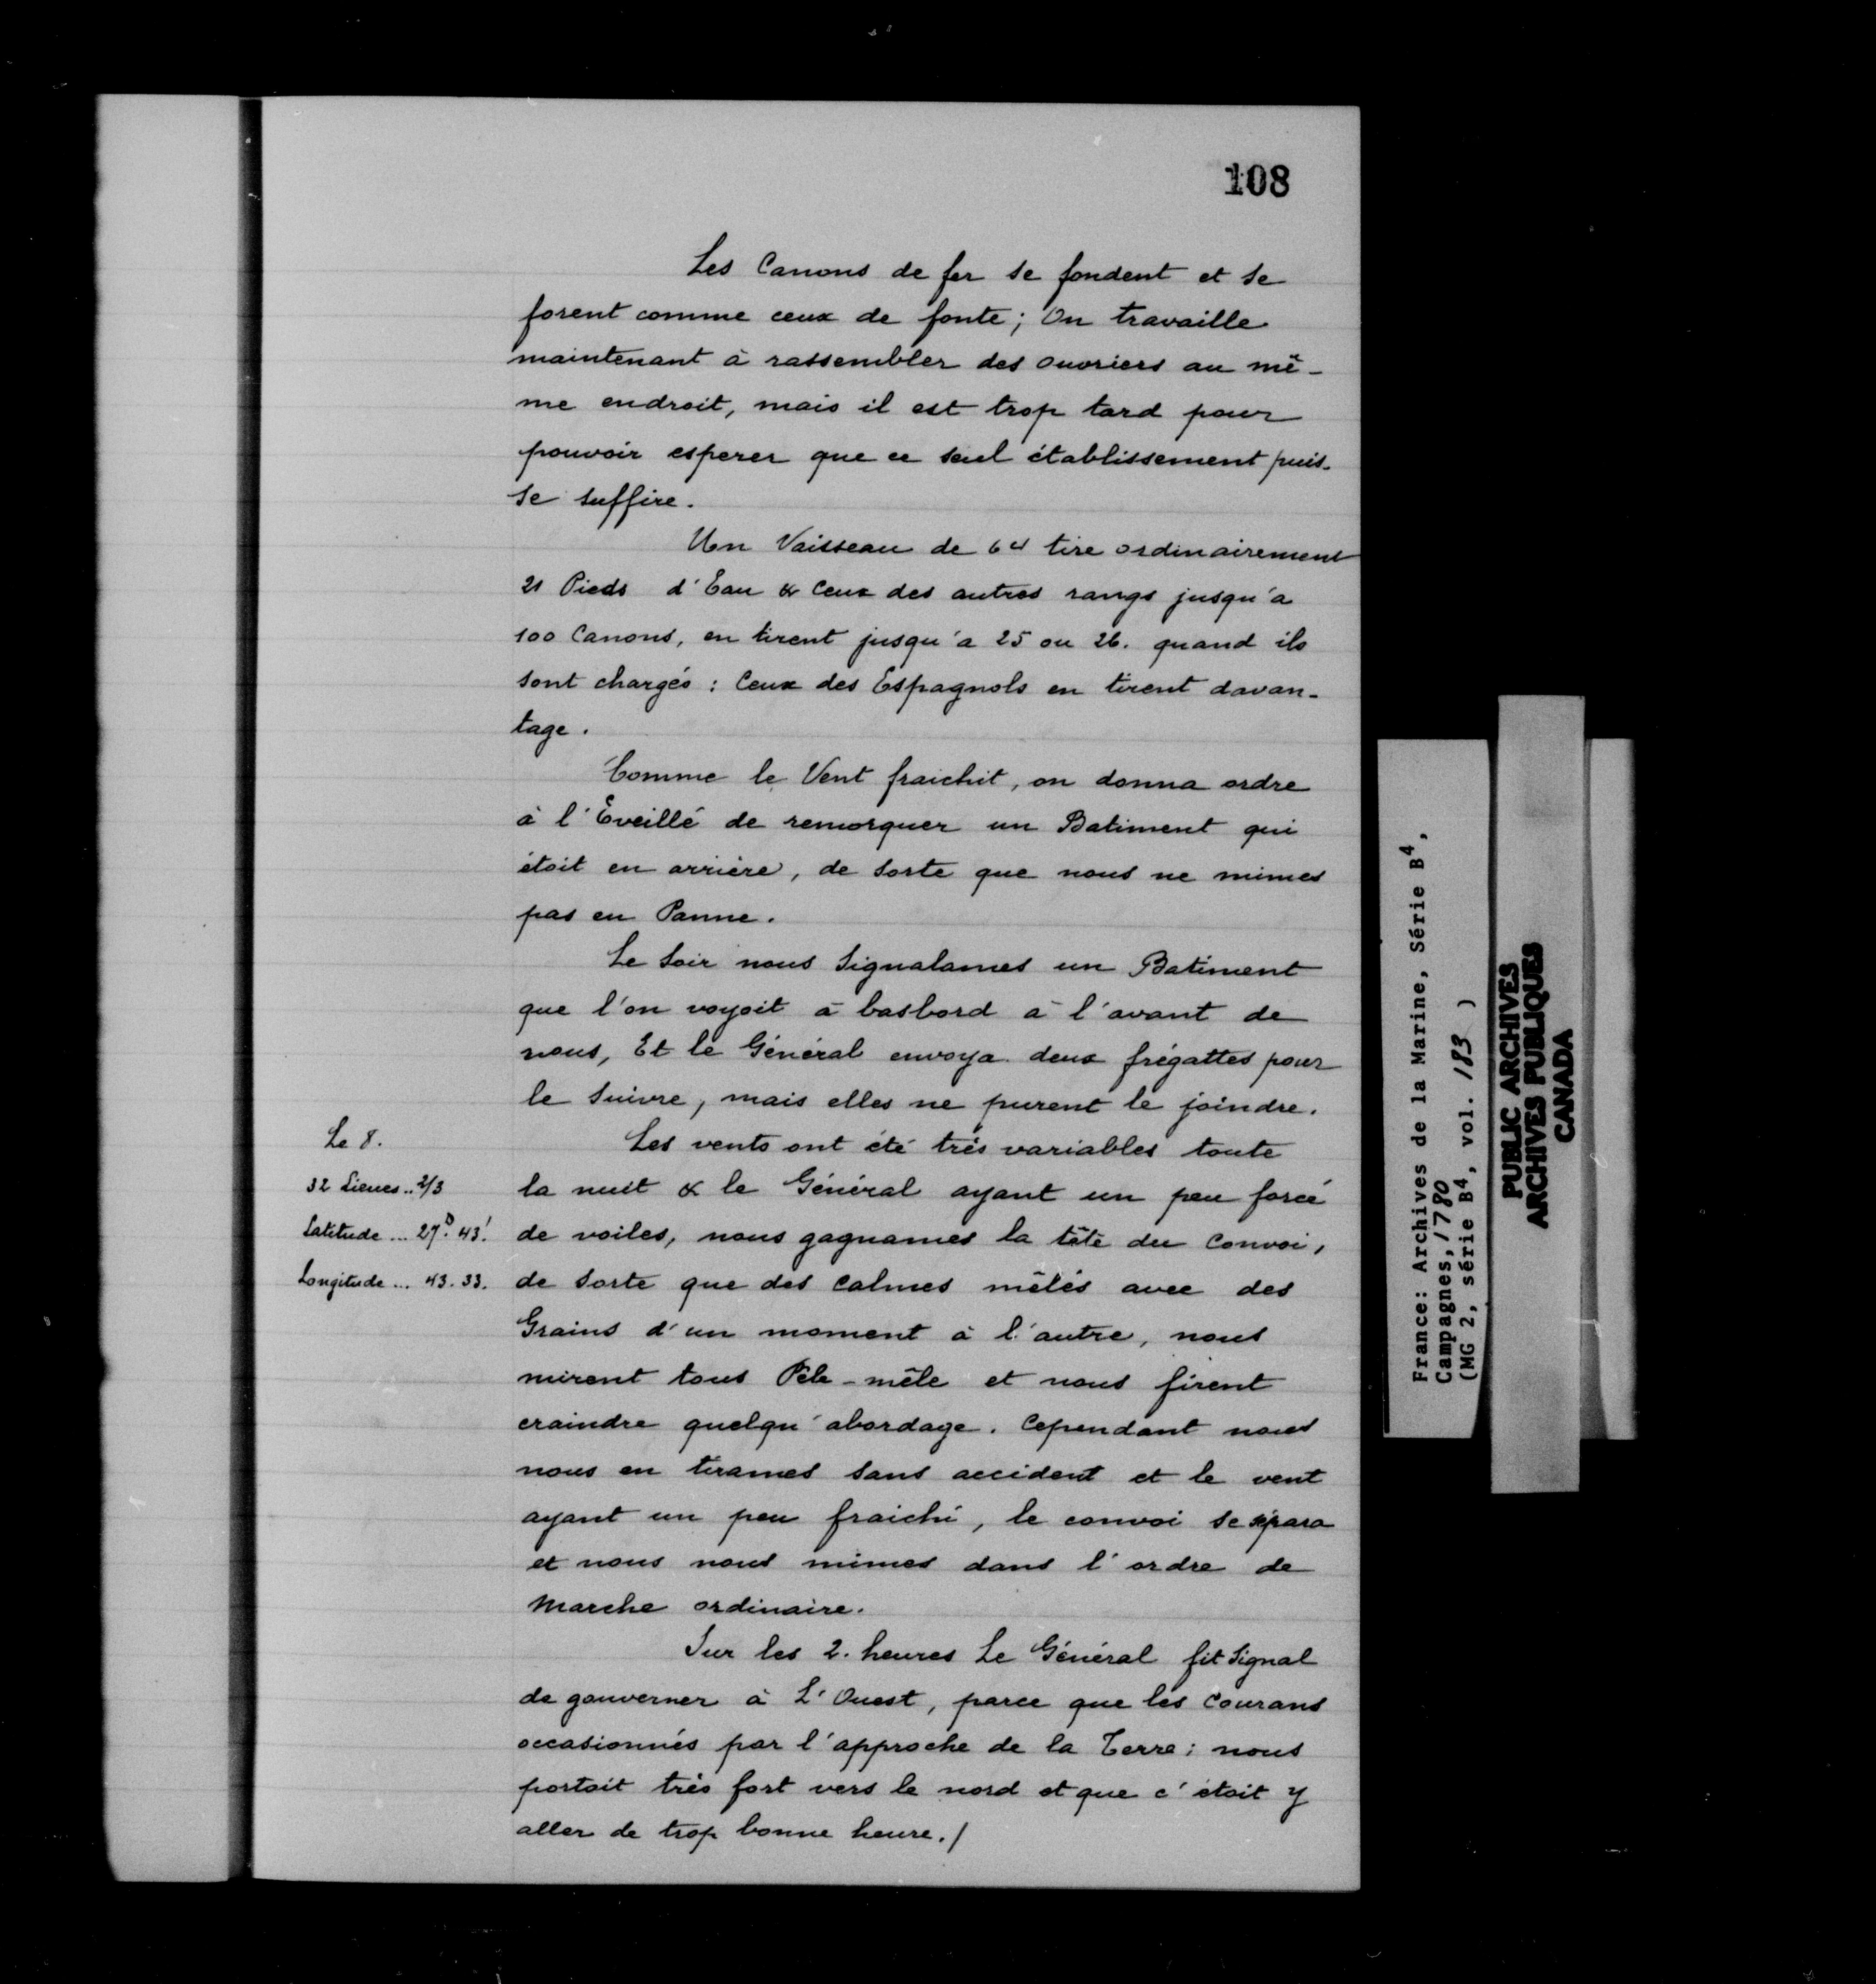 108
Les Canons de fer se fondent et se
forent comme ceux de fonte; On travaille
maintenant à rassembler des ouvriers au mê-
me endroit, mais il est trop tard pour
pouvoir esperer que ce seul établissement puis-
se suffire.
Un Vaisseau de 64 tire ordinairement
21 Pieds d'Eau & Ceux des autres rangs jusqu'a
100 Canons, en tirent jusqu'a 25 ou 26. quand ils
sont chargés : Ceux des Espagnols en tirent davan-
tage.
Comme le Vent fraichit, on donna ordre
à l'Eveillé de remorquer un Batiment qui
étoit en arrière, de sorte que nous ne mimes
pas en Panne.
Le Soir nous Signalames un Batiment
que l'on voyoit à basbord à l'avant de
nous, Et le Général envoya deux frégattes pour
le suivre, mais elles ne purent le joindre.
Le 8.
32 Lieues .. 2/3
Latitude ... 27.D 43.'
Longitude ... 43. 33.
Les vents ont été très variables toute
la nuit & le Général ayant un peu forcé
de voiles, nous gagnames la tête du Convoi,
de sorte que des Calmes mêlés avec des
Grains d'un moment à l'autre, nous
mirent tous Pêle-mêle et nous firent
craindre quelqu'abordage. Cependant nous
nous en tirames sans accident et le vent
ayant un peu fraichi, le convoi se sépara
et nous nous mimes dans l'ordre de
Marche ordinaire.
Sur les 2. heures Le Général fit Signal
de gouverner à L'Ouest, parce que les Courans
occasionnés par l'approche de la Terre; nous
portait très fort vers le nord et que c'étoit y
aller de trop bonne heure./
France: Archives de la Marine, Série B4,
Campagnes, 1780
(MG 2, série B4, vol. 183 )
PUBLIC ARCHIVES
ARCHIVES PUBLIQUES
CANADA